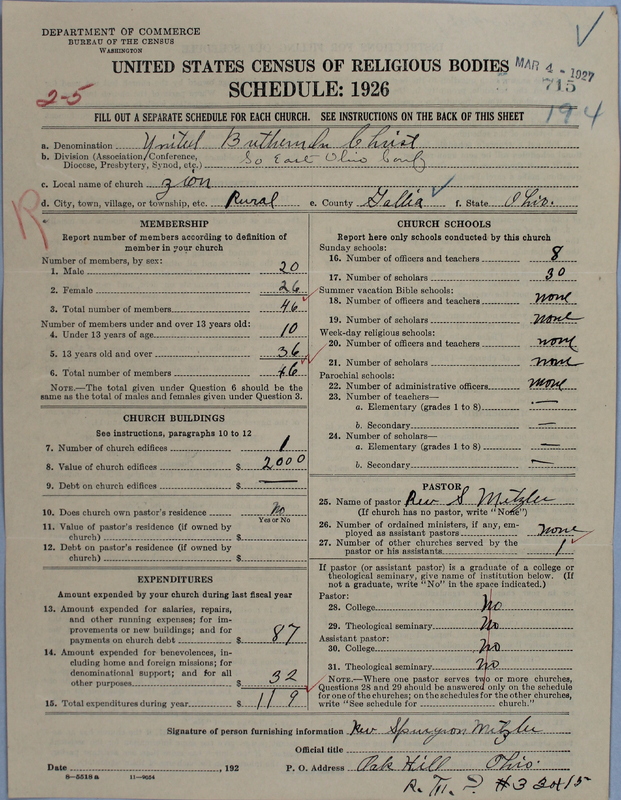 DEPARTMENT OF COMMERCE
BUREAU OF THE CENSUS
WASHINGTON
UNITED STATES CENSUS OF RELIGIOUS BODIES
SCHEDULE: 1926
MAR 4 - 1927
715
194
2-5
FILL OUT A SEPARATE SCHEDULE FOR EACH CHURCH. SEE INSTRUCTIONS ON THE BACK OF THIS SHEET
a. Denomination United Brethern in Christ
b. Division (Association, Conference, Diocese, Presbytery, Synod, etc.) So East Ohio Conf
c. Local name of church Zion
d. City, town, village, or township, etc. Rural e. County Gallia f. State Ohio.
R
MEMBERSHIP
Report number of members according to definition of
member in your church
Number of members, by sex:
1. Male 20
2. Female 26
3. Total number of members 46
Number of members under and over 13 years old:
4. Under 13 years of age 10
5. 13 years old and over 36
6. Total number of members 46
NOTE.—The total given under Question 6 should be
same as the total of males and females given under Question 3.
CHURCH BUILDINGS
See instructions, paragraphs 10 to 12
7. Number of church edifices 1
8. Value of church edifices $ 2000
9. Debt on church edifices $ —
10. Does church own pastor's residence No
Yes or No
11. Value of pastor's residence (if owned by
church) $
12. Debt on pastor's residence (if owned by
church) $
EXPENDITURES
Amount expended by your church during last fiscal year
13. Amount expended for salaries, repairs,
and other running expenses; for im-
provements or new buildings; and for
payments on church debt $ 87
14. Amount expended for benevolences, in-
cluding home and foreign missions; for
denominational support; and for all
other purposes $ 32
15. Total expenditures during year $ 119
CHURCH SCHOOLS
Report here only schools conducted by this church
Sunday schools:
16. Number of officers and teachers 8
17. Number of scholars 30
Summer vacation Bible schools:
18. Number of officers and teachers none
19. Number of scholars none
Week-day religious schools:
20. Number of officers and teachers none
21. Number of scholars none
Parochial schools:
22. Number of administrative officers none
23. Number of teachers—
a. Elementary (grades 1 to 8) —
b. Secondary —
24. Number of scholars—
a. Elementary (grades 1 to 8) —
b. Secondary —
PASTOR
25. Name of pastor Rev S Metzler
(If church has no pastor, write "None")
26. Number of ordained ministers, if any, em-
ployed as assistant pastors none
27. Number of other churches served by the
pastor or his assistants 1
If pastor (or assistant pastor) is a graduate of a college or
theological seminary, give name of institution below. (If
not a graduate, write "No" in the space indicated.)
Pastor:
28. College No
29. Theological seminary No
Assistant pastor:
30. College No
31. Theological seminary No
NOTE.—Where one pastor serves two or more churches,
Questions 28 and 29 should be answered only on the schedule
for one of the churches; on the schedules for the other churches,
write "See schedule for church."
Signature of person furnishing information Rev. Spurgeon Metzler
Official title
Date , 192 P. O. Address Oak Hill Ohio.
8—5518 a 11—9054
#3